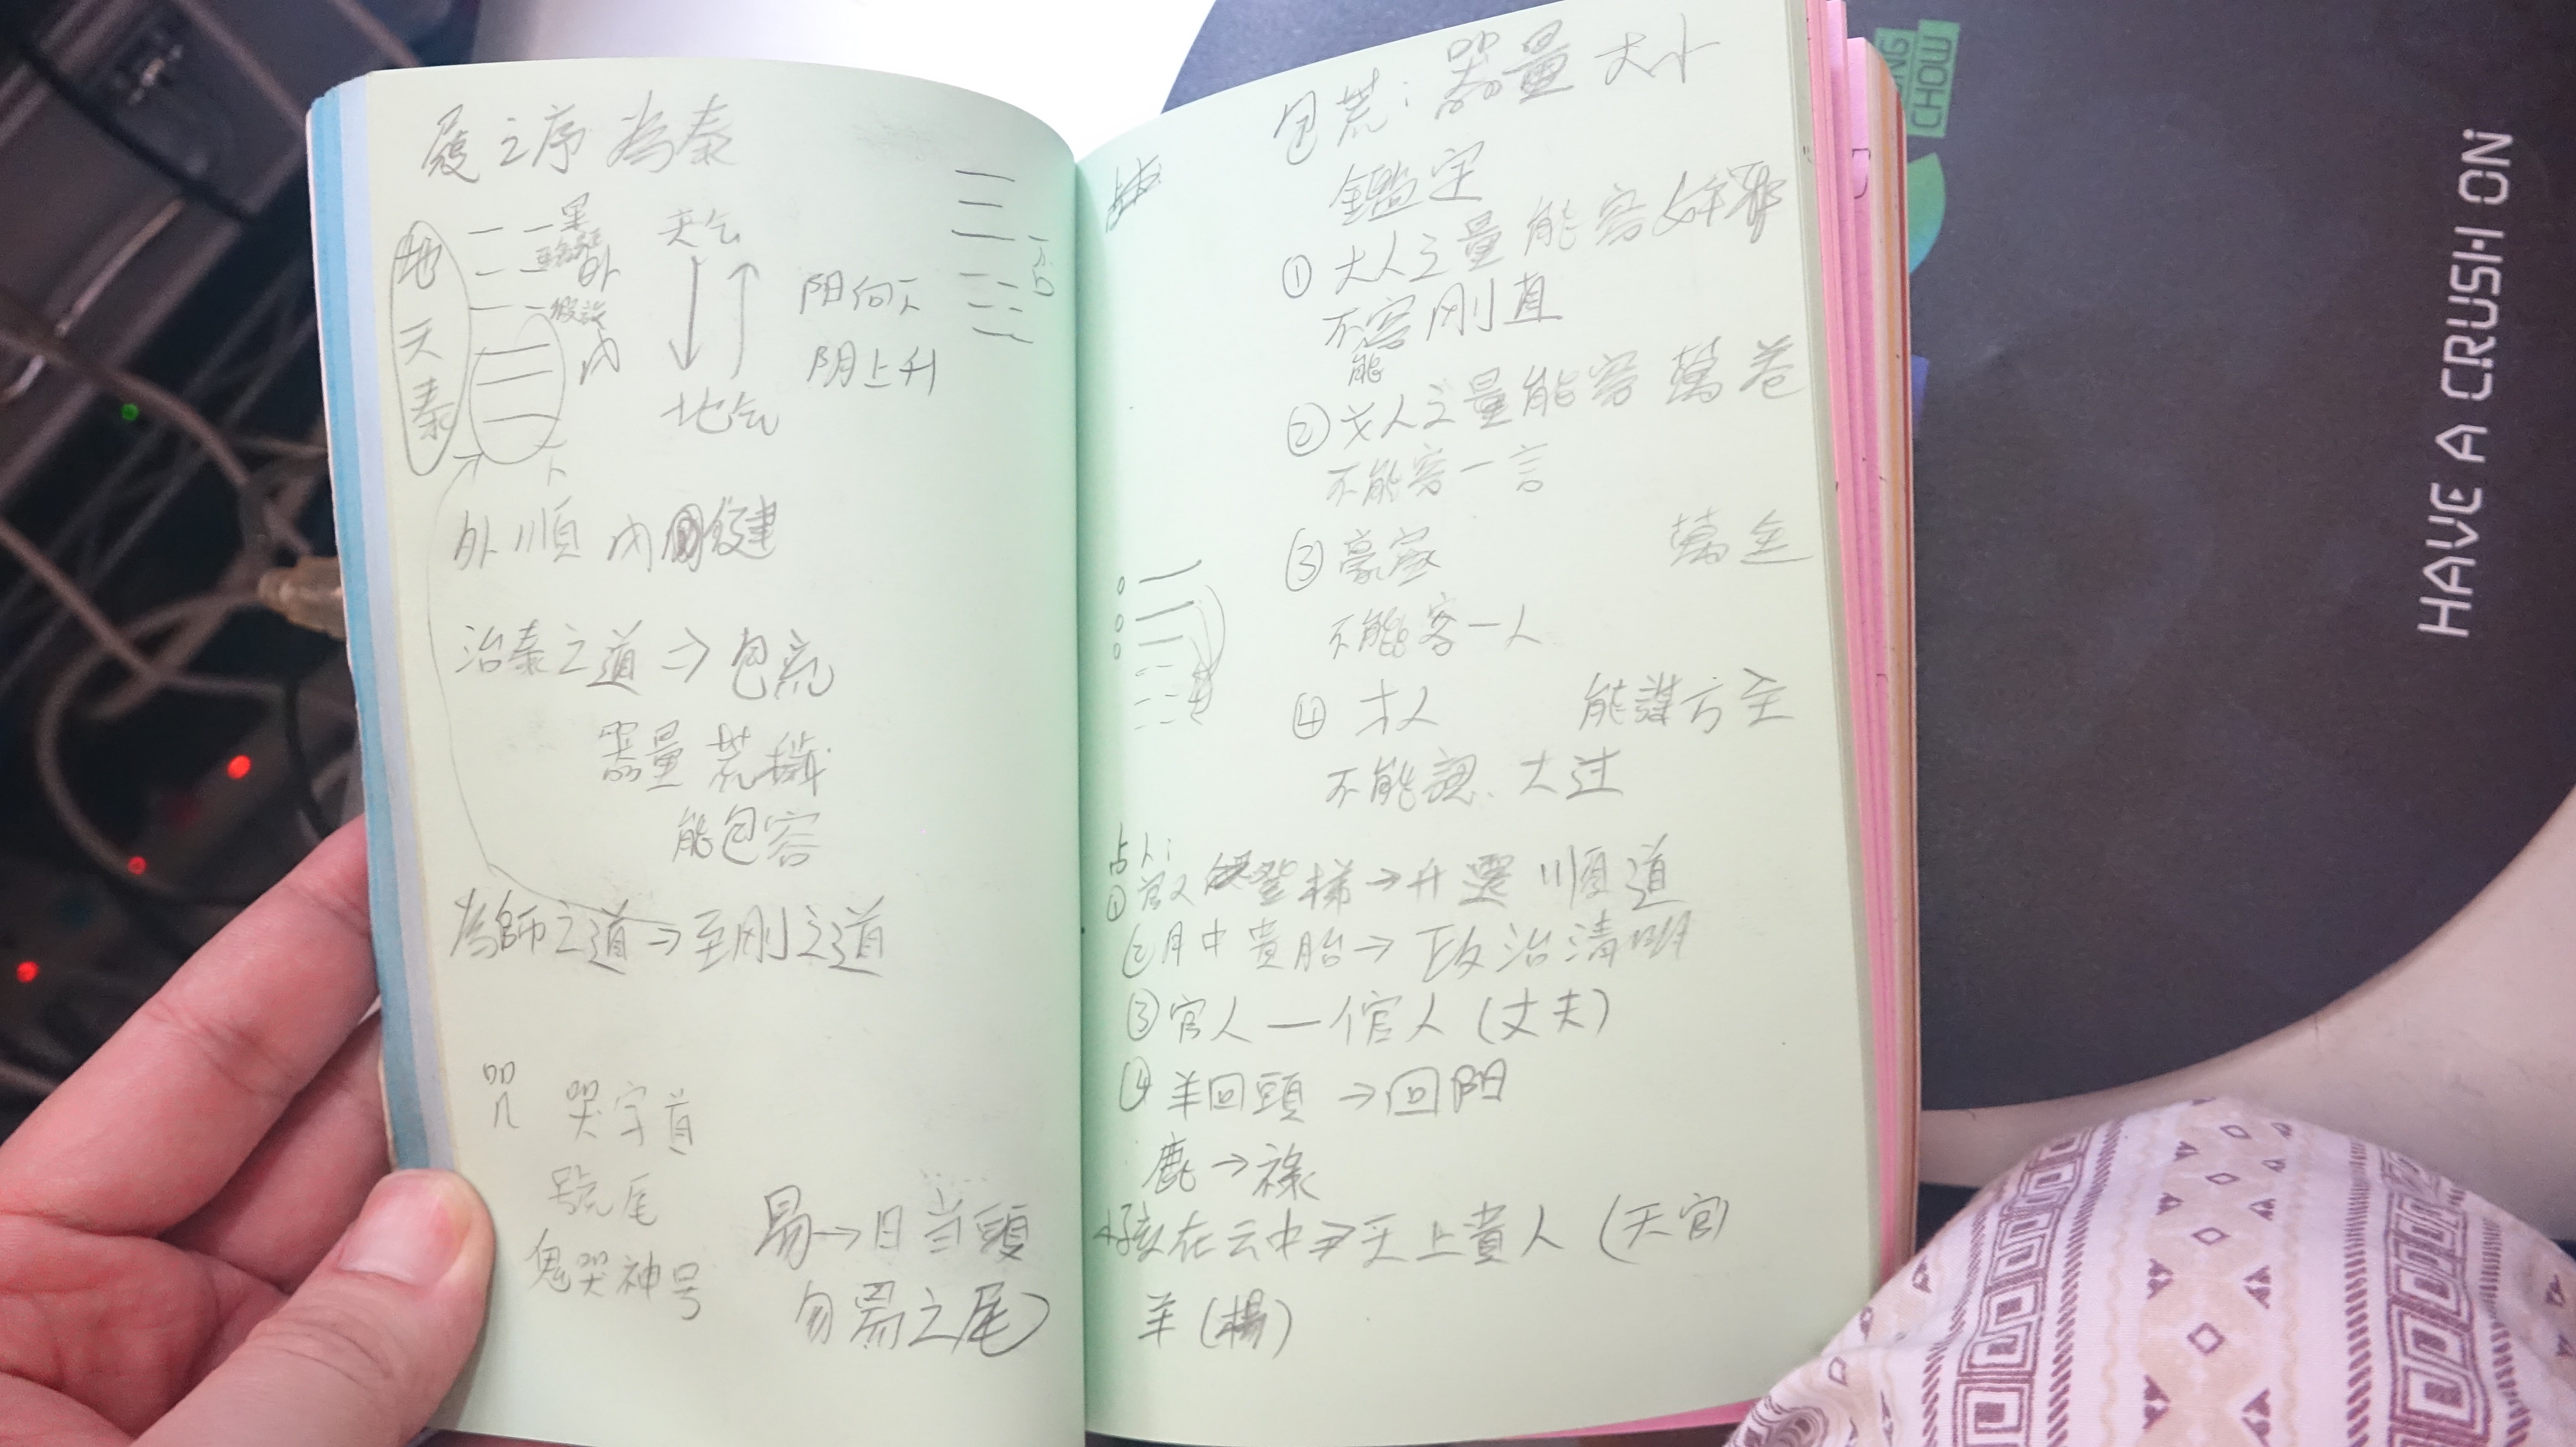 履之序為泰
地天泰
外
假設
内
天气
地气
阳向下
阴上升
外順 内健
治泰之道 ⇒ 包荒
器量 荒穢
能包容
為師之道 ⇒ 至刚之道
咒
哭字首
號尾
鬼哭神号
易→日当頭
勿易之尾
包荒:器量 大小
鑑定
① 大人之量能容奸邪
不能容刚直
② 文人之量能容 萬卷
不能容一言
③ 豪富 萬金
不能容一人
④ 才人 能謀方全
不能認 大过
占卜:
① 官人登梯→升選 順道
② 月中貴胎→政治清明
③ 官人—倌人(丈夫)
④ 羊回頭→回阳
鹿→祿
小孩在云中⇒天上貴人(天官)
羊(楊)
HAVE A CRUSH ON
CHOW